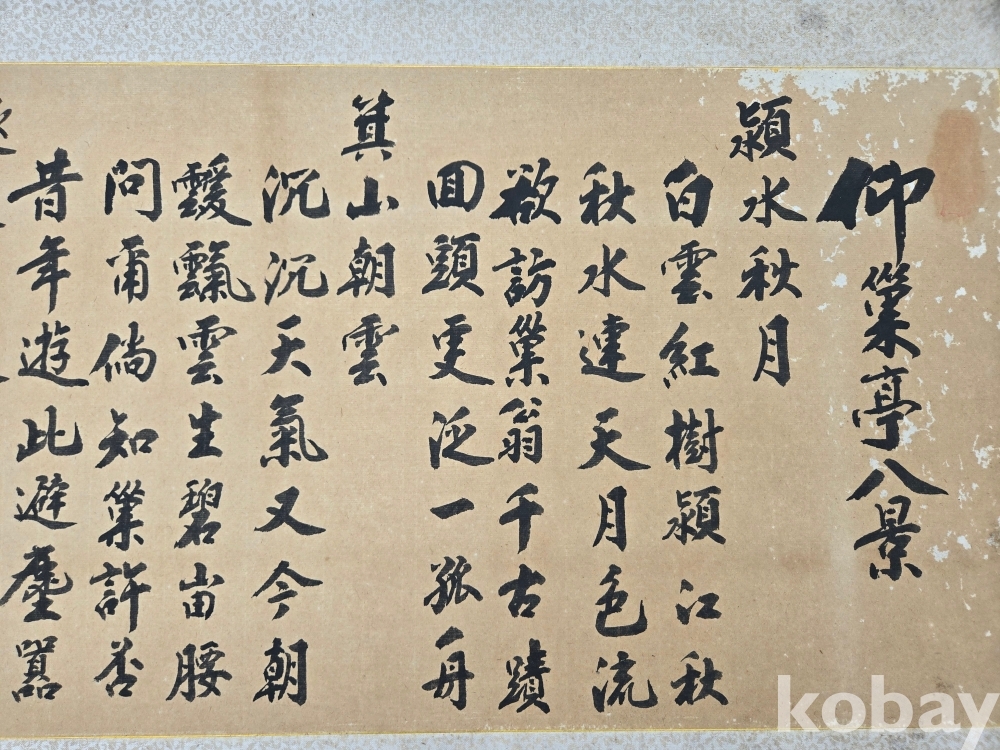 仰巢亭八景
潁水秋月
白雲紅樹潁江秋
秋水連天月色流
欲訪巢翁千古蹟
回頭更泛一孤舟
箕山朝雲
沉沉天氣又今朝
靉靆雲生碧峀腰
問爾倘知巢許否
昔年遊此避塵囂
kobay